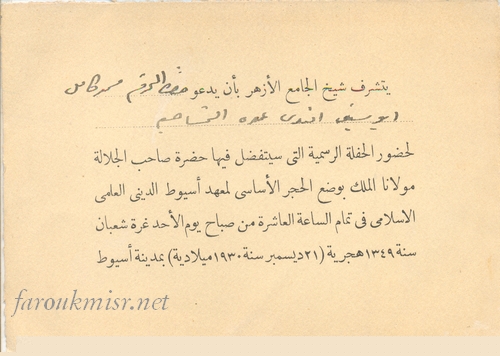 يتشرف شيخ الجامع الأزهر بأن يدعو حضرة المحترم محمد كامل
أبو ستيت افندى عمده
لحضور الحفلة الرسمية التى سيتفضل فيها حضرة صاحب الجلالة
مولانا الملك بوضع الحجر الأساسى لمعهد أسيوط الدينى العلمى
الاسلامى فى تمام الساعة العاشرة من صباح يوم الأحد غرة شعبان
سنة ١٣٤٩ هجرية (٢١ ديسمبر سنة ١٩٣٠ ميلادية) بمدينة أسيوط
faroukmisr.net